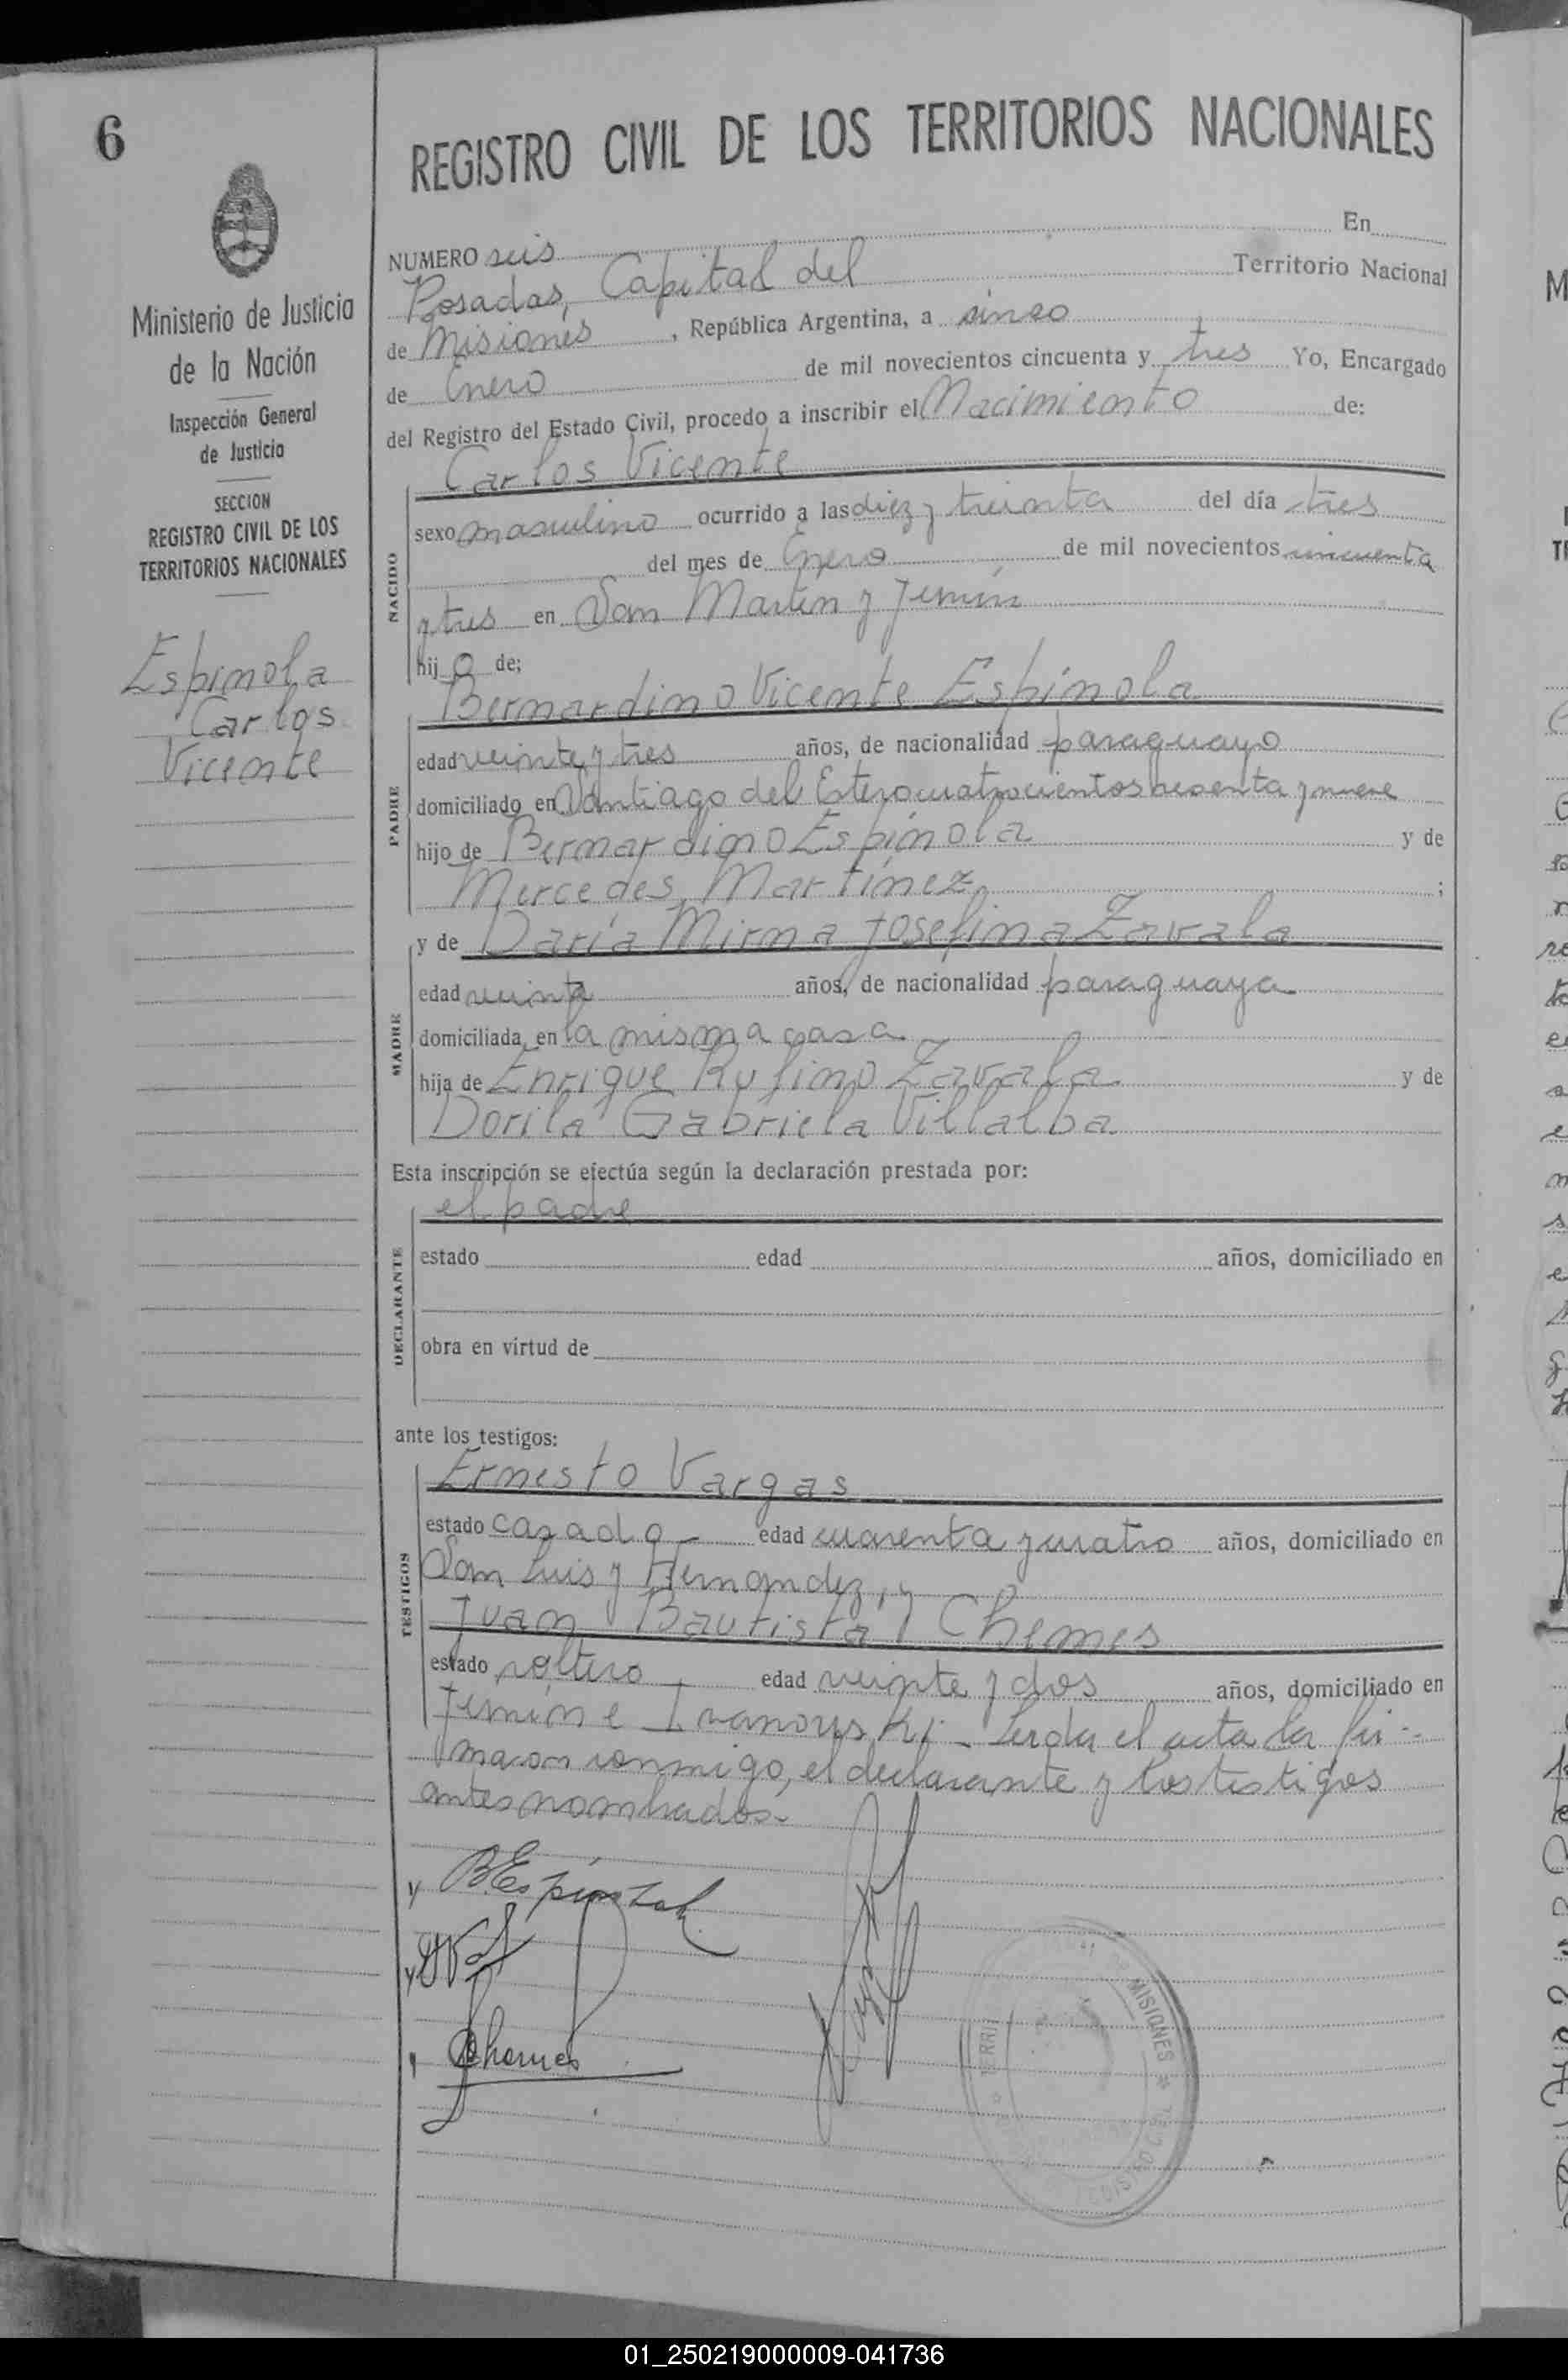 6
Ministerio de Justicia
de la Nación
Inspección General
de Justicia
SECCION
REGISTRO CIVIL DE LOS
TERRITORIOS NACIONALES
Espinola
Carlos
Vicente
REGISTRO CIVIL DE LOS TERRITORIOS NACIONALES
NUMERO seis En
Posadas, Capital del Territorio Nacional
de Misiones, República Argentina, a cinco
de Enero de mil novecientos cincuenta y tres Yo, Encargado
del Registro del Estado Civil, procedo a inscribir el Nacimiento de:
Carlos Vicente
NACIDO
sexo masculino ocurrido a las diez y treinta del día tres
del mes de Enero de mil novecientos cincuenta
y tres en San Martín y Junín
hijo de;
Bernardino Vicente Espínola
PADRE
edad veinte y tres años, de nacionalidad paraguayo
domiciliado en Santiago del Estero cuatrocientos sesenta y nueve
hijo de Bernardino Espínola y de
Mercedes Martínez ;
y de Daría Mirna Josefina Zavala
MADRE
edad veinte años, de nacionalidad paraguaya
domiciliada en la misma casa
hija de Enrique Rufino Zavala y de
Dorila Gabriela Villalba
Esta inscripción se efectúa según la declaración prestada por:
el padre
DECLARANTE
estado edad años, domiciliado en
obra en virtud de
ante los testigos:
Ernesto Vargas
TESTIGOS
estado casado edad cuarenta y cuatro años, domiciliado en
San Luis y Hernandez, y
Juan Bautista Chemes
estado soltero edad veinte y dos años, domiciliado en
Junín e Ivanowski - Leida el acta la fir-
maron conmigo, el declarante y los testigos
antes nombrados.-
Chemes
MISIONES
TERRI
01_250219000009-041736